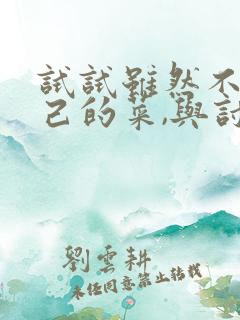 試試雖然不
己的菜,與討
劉雲耕
未經同意禁止轉載